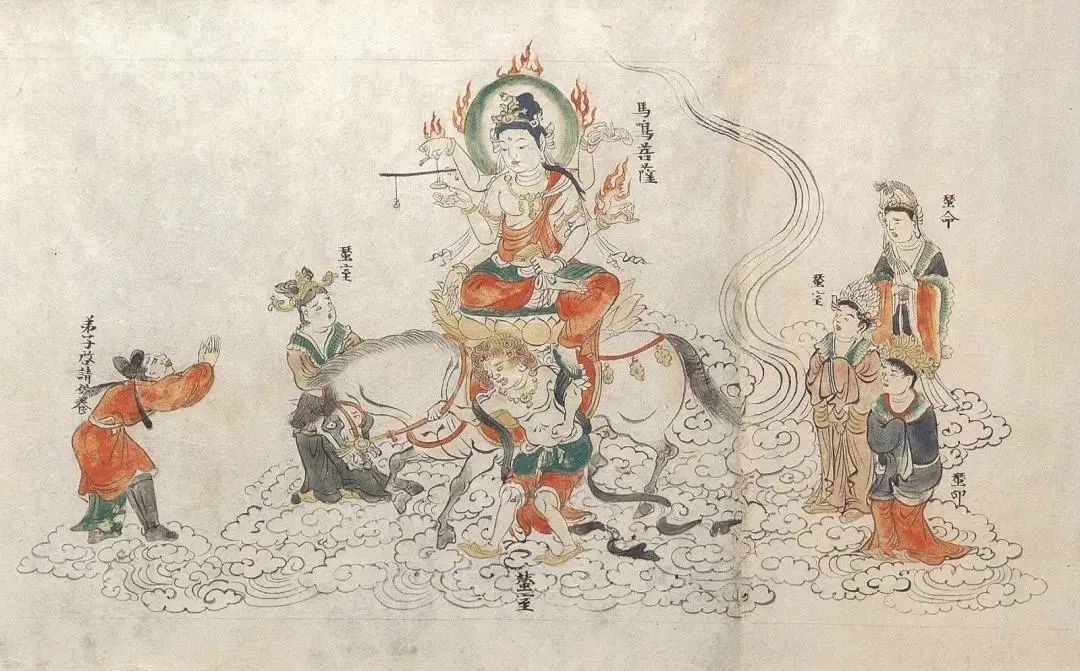 蚕命
蚕室
蚕印
馬鳴菩薩
蚕室
蚕室
弟子啓請供養